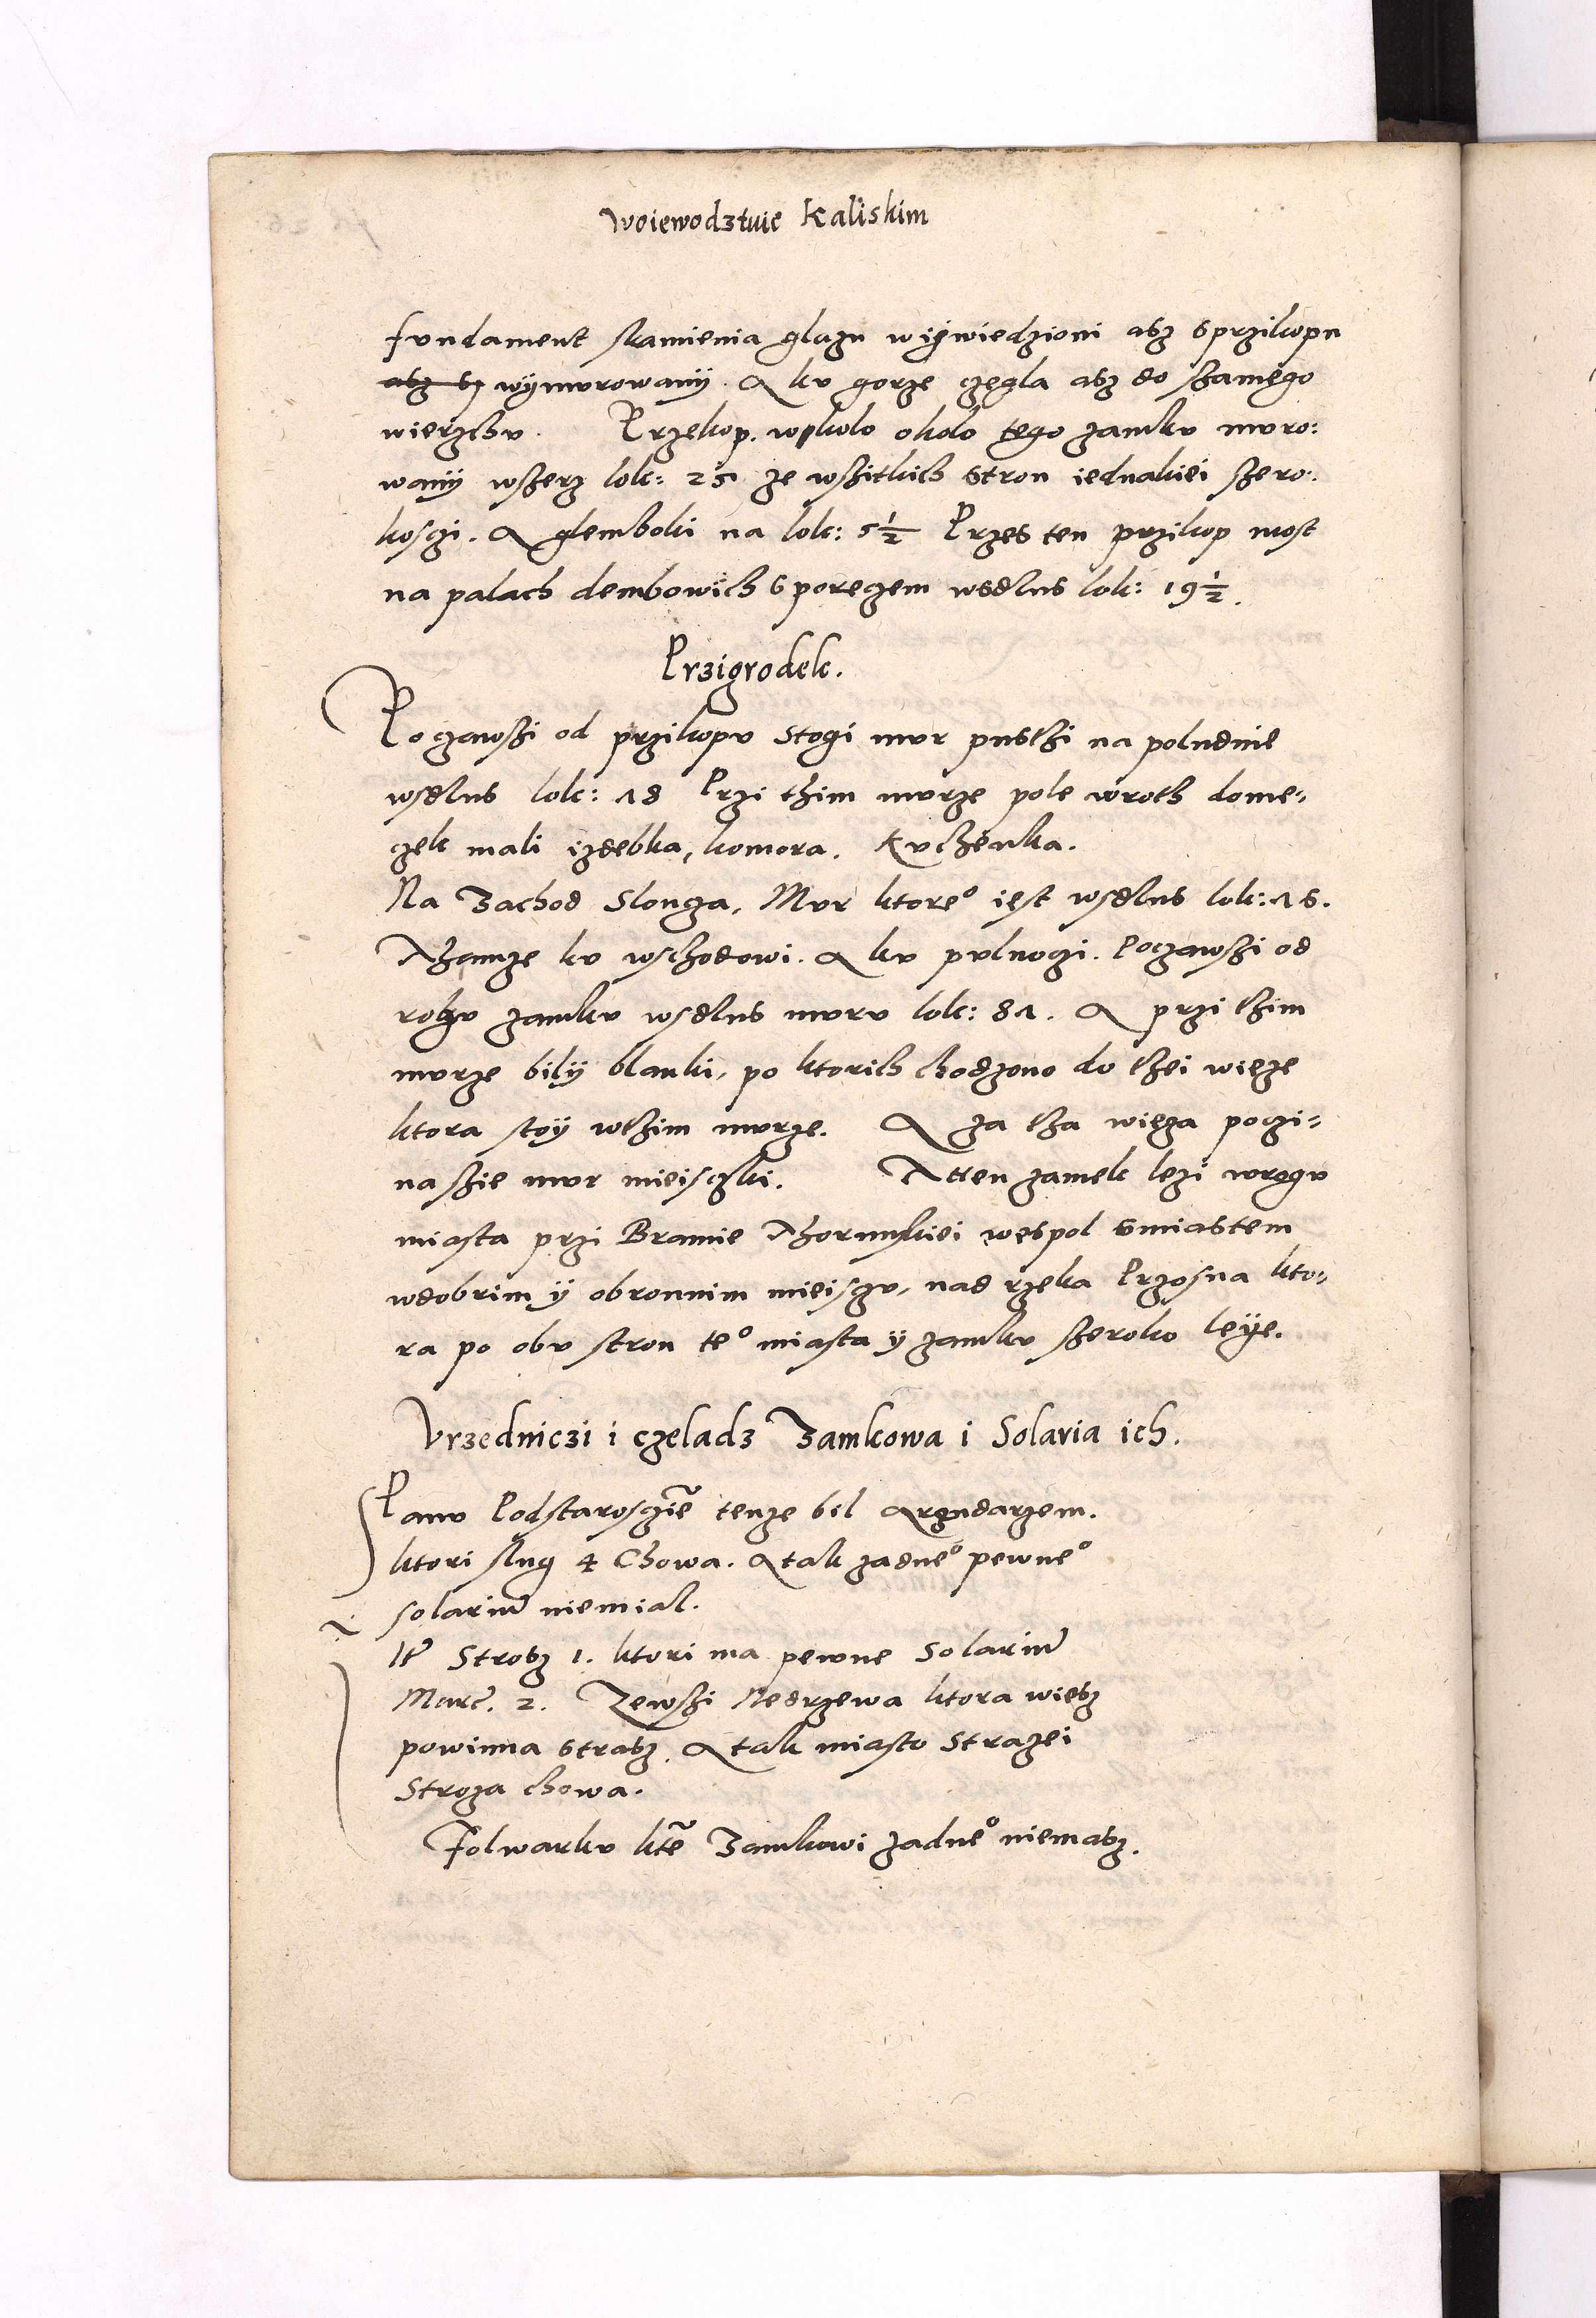 Woiewodztwie Kaliskim
fundament skamienia glazu wiswiedzioni asz sprzikopu
asz sz wymurowany. A ku gorze czegla asz do szamego
wierzchu. Przekop. wkolo okolo tego zamku muro:
wany wszerz lok: 25 ze wszitkich stron iednakiei szero:
kosczi. A glemboki na lok: 5½ Przes ten przikop most
na palach dembowich sporeczem wsdlus lok: 19½.
Przigrodek.
Poczowszi od przikopu stogi mur pusthi na poludnie
wsdlus lok: 18 Przi thim murze pole wroth dome,
czek mali izdebka, komora. Kuchenka.
Na Zachod Slonca, Mur ktore° iest wsdlus lok: 16.
Thamze ku wschodowi. A ku pulnoczi. Poczowszi od
rohu zamku wsdlus muru lok: 81. A przi thim
murze bily blanki, po ktorich chodzono do thei wieze
ktora stoy wthim murze. A za tha wieza poczi:
na szie mur mieisczki. A tten zamek lezi wrogu
miasta przi Bramie Thorunskiei wespol smiastem
wdobrim y obronnim mieisczu, nad rzeka Przosna kto,
ra po obu stron te° miasta y zamku szeroko leye.
Vrzedniczi i czeladz Zamkowa i Solaria ich.
Panu Podstarosczie tenze bel Arendarzem.
ktori slug 4 Chowa. A tak zadne° pewne°
solariu niemial.
It Strosz 1. ktori ma pewne Solariu
Marc. 2. Zewszi Nedrzewa ktora wiesz
powinna strasz. A tak miasto strazei
stroza chowa.
Folwarku kte Zamkowi zadne° niemasz.